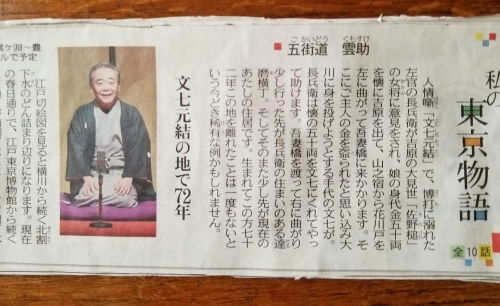 私の
東京物語
全10話
五街道 雲助
ごかいどう くもすけ
人情噺「文七元結」で、博打に溺れた
左官の長兵衛が吉原の大見世「佐野槌」
の女将に意見をされ、娘の身代金五十両
を懐に吉原を出て、山之宿から花川戸を
左に曲がって吾妻橋に来かかります。そ
こにご主人の金を盗られたと思い込み大
川に身を投げようとする手代の文七が。
長兵衛は懐の五十両を文七にくれてやっ
て助けます。吾妻橋を渡って右に曲がり
少し行った先が長兵衛の住まいのある達
磨横丁。そしてそのまた少し先が現在の
あたしの住居です。生まれてこの方七十
二年この地を離れたことは一度もないと
いう今どき稀有な例かもしれません。
文七元結の地で72年
江戸切絵図を見ると横川から続く北割
下水のどん詰まり辺りになります。現在
の春日通りで、江戸東京博物館から続く
ルで予定